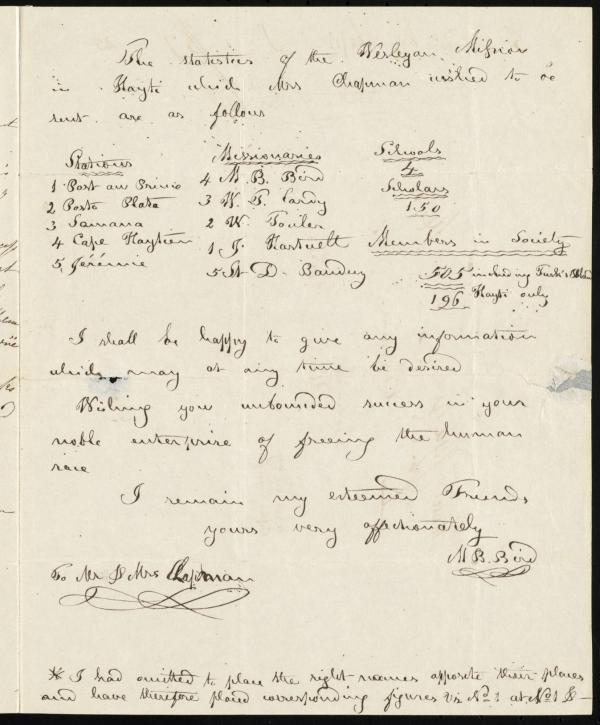 The statistics of the Wesleyan Mission
in Hayti which Mrs Chapman wished to be
sent are as follows
Stations Missionaries Schools
4
1 Port au Prince 4 M. B. Bird Scholars
2 Porto Plata 3 W. T. Cardy 150
3 Samana 2 W. Towler
4 Cape Haytien 1 J. Hartwell Members in Society
5 Jérémie 5 St D. Bauduy 505 including Turk's
196 Hayti only
I shall be happy to give any information
which may at any time be desired
Wishing you unbounded success in your
noble enterprise of freeing the human
race
I remain my esteemed Friends
yours very affectionately
M. B. Bird
To Mr & Mrs Chapman
* I had omitted to place the right names opposite their places
and have therefore placed corresponding figures viz No 1 at No 1 &-